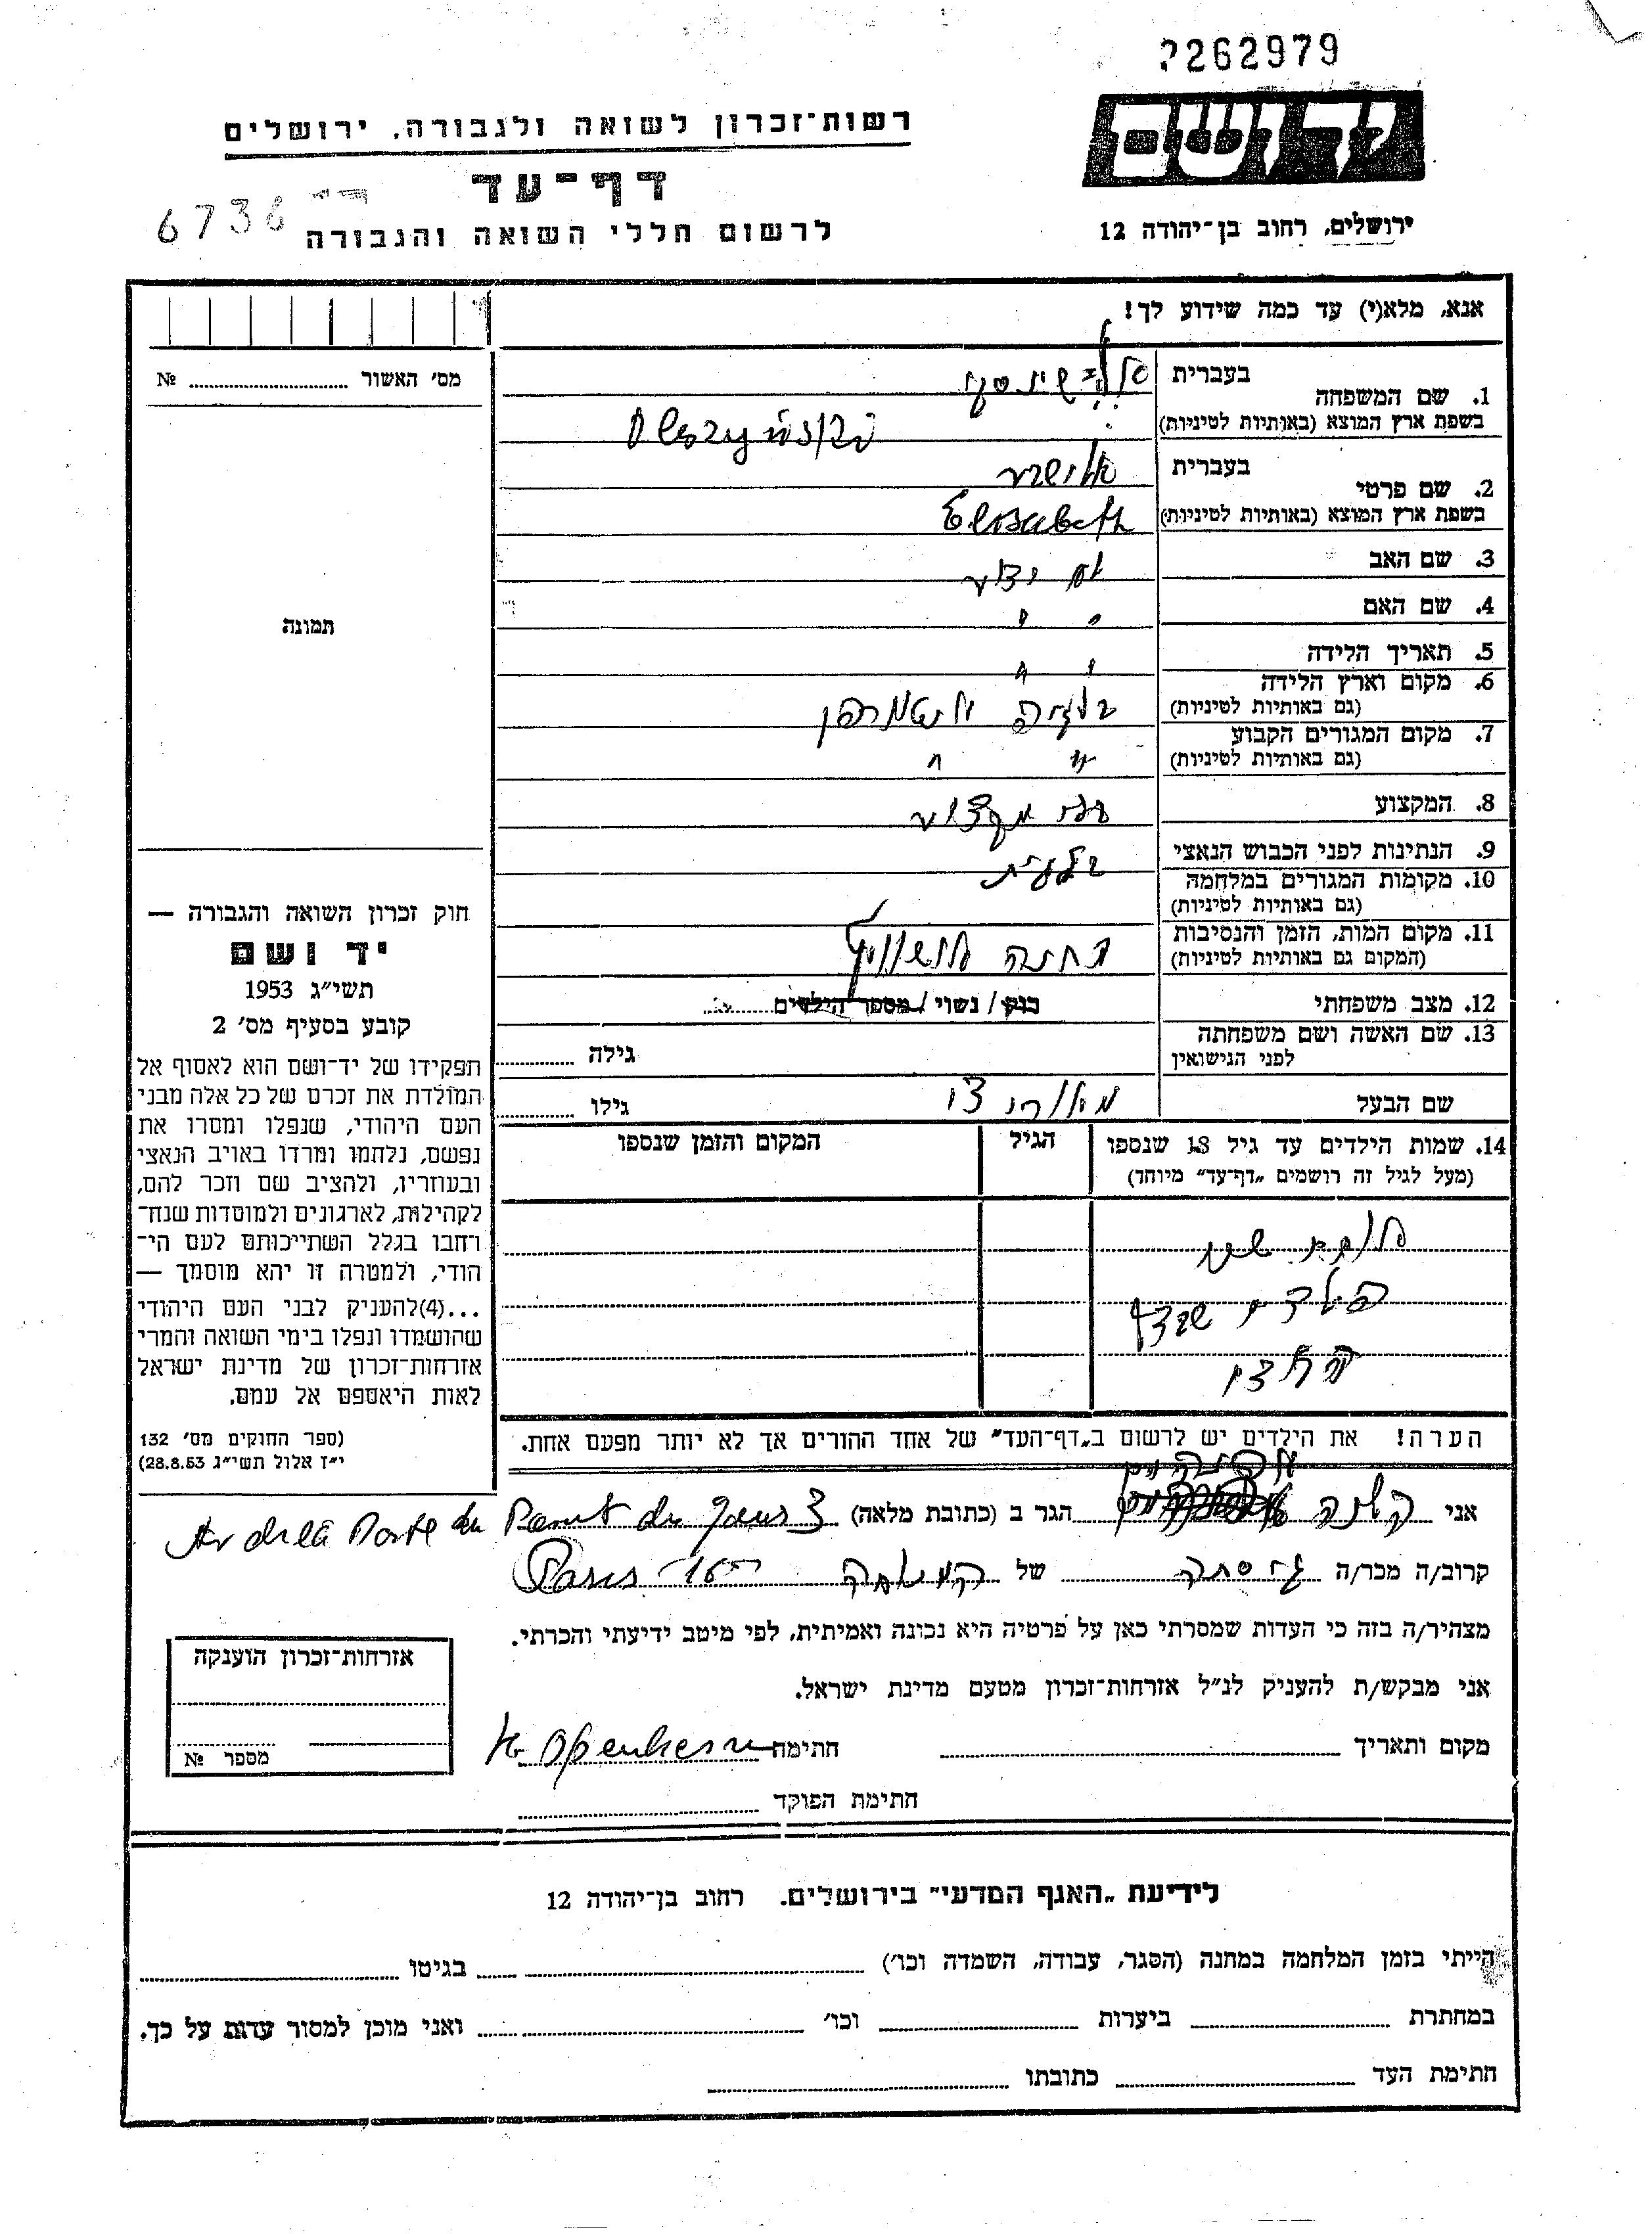 262979
יד ושם
רשות־זכרון לשואה ולגבורה, ירושלים
דף־עד
לרשום חללי השואה והגבורה
6736
ירושלים, רחוב בן־יהודה 12
אנא, מלא(י) עד כמה שידוע לך!
מס׳ האשור № 
1. שם המשפחה
בעברית
בשפת ארץ המוצא (באותיות לטיניות)
2. שם פרטי
בעברית אלישבע
בשפת ארץ המוצא (באותיות לטיניות) Elisabeth
3. שם האב לא ידוע
4. שם האם " "
5. תאריך הלידה " "
6. מקום וארץ הלידה
(גם באותיות לטיניות)
בלגיה
7. מקום המגורים הקבוע
(גם באותיות לטיניות) " "
8. המקצוע בלי מקצוע
9. הנתינות לפני הכבוש הנאצי בלגית
10. מקומות המגורים במלחמה
(גם באותיות לטיניות)
11. מקום המות, הזמן והנסיבות
(המקום גם באותיות לטיניות)
במחנה אושוויץ
12. מצב משפחתי רווק / נשוי / מספר הילדים
13. שם האשה ושם משפחתה
לפני הנישואין
גילה
שם הבעל
גילו
14. שמות הילדים עד גיל 18 שנספו
(מעל לגיל זה רושמים „דף־עד” מיוחד)
הגיל
המקום והזמן שנספו
הערה! את הילדים יש לרשום ב„דף־העד” של אחד ההורים אך לא יותר מפעם אחת.
תמונה
חוק זכרון השואה והגבורה —
יד ושם
תשי״ג 1953
קובע בסעיף מס׳ 2
תפקידו של יד־ושם הוא לאסוף אל
המולדת את זכרם של כל אלה מבני
העם היהודי, שנפלו ומסרו את
נפשם, נלחמו ומרדו באויב הנאצי
ובעוזריו, ולהציב שם וזכר להם,
לקהילות, לארגונים ולמוסדות שנח־
רחבו בגלל השתייכותם לעם הי־
הודי, ולמטרה זו יהא מוסמך —
...(4)להעניק לבני העם היהודי
שהושמדו ונפלו בימי השואה והמרי
אזרחות־זכרון של מדינת ישראל
לאות היאספם אל עמם.
(ספר החוקים מס׳ 132
י״ז אלול תשי״ג 28.8.53)
אני הגר ב (כתובת מלאה)
קרוב/ה מכר/ה גיסתה של המנוחה Paris 16
מצהיר/ה בזה כי העדות שמסרתי כאן על פרטיה היא נכונה ואמיתית, לפי מיטב ידיעתי והכרתי.
אני מבקש/ת להעניק לנ״ל אזרחות־זכרון מטעם מדינת ישראל.
מקום ותאריך חתימה
חתימת הפוקד
אזרחות־זכרון הוענקה
מספר №
לידיעת „האגף המדעי” בירושלים. רחוב בן־יהודה 12
הייתי בזמן המלחמה במחנה (הסגר, עבודה, השמדה וכו׳) בגיטו
במחתרת ביערות וכו׳ ואני מוכן למסור עדות על כך.
חתימת העד כתובתו